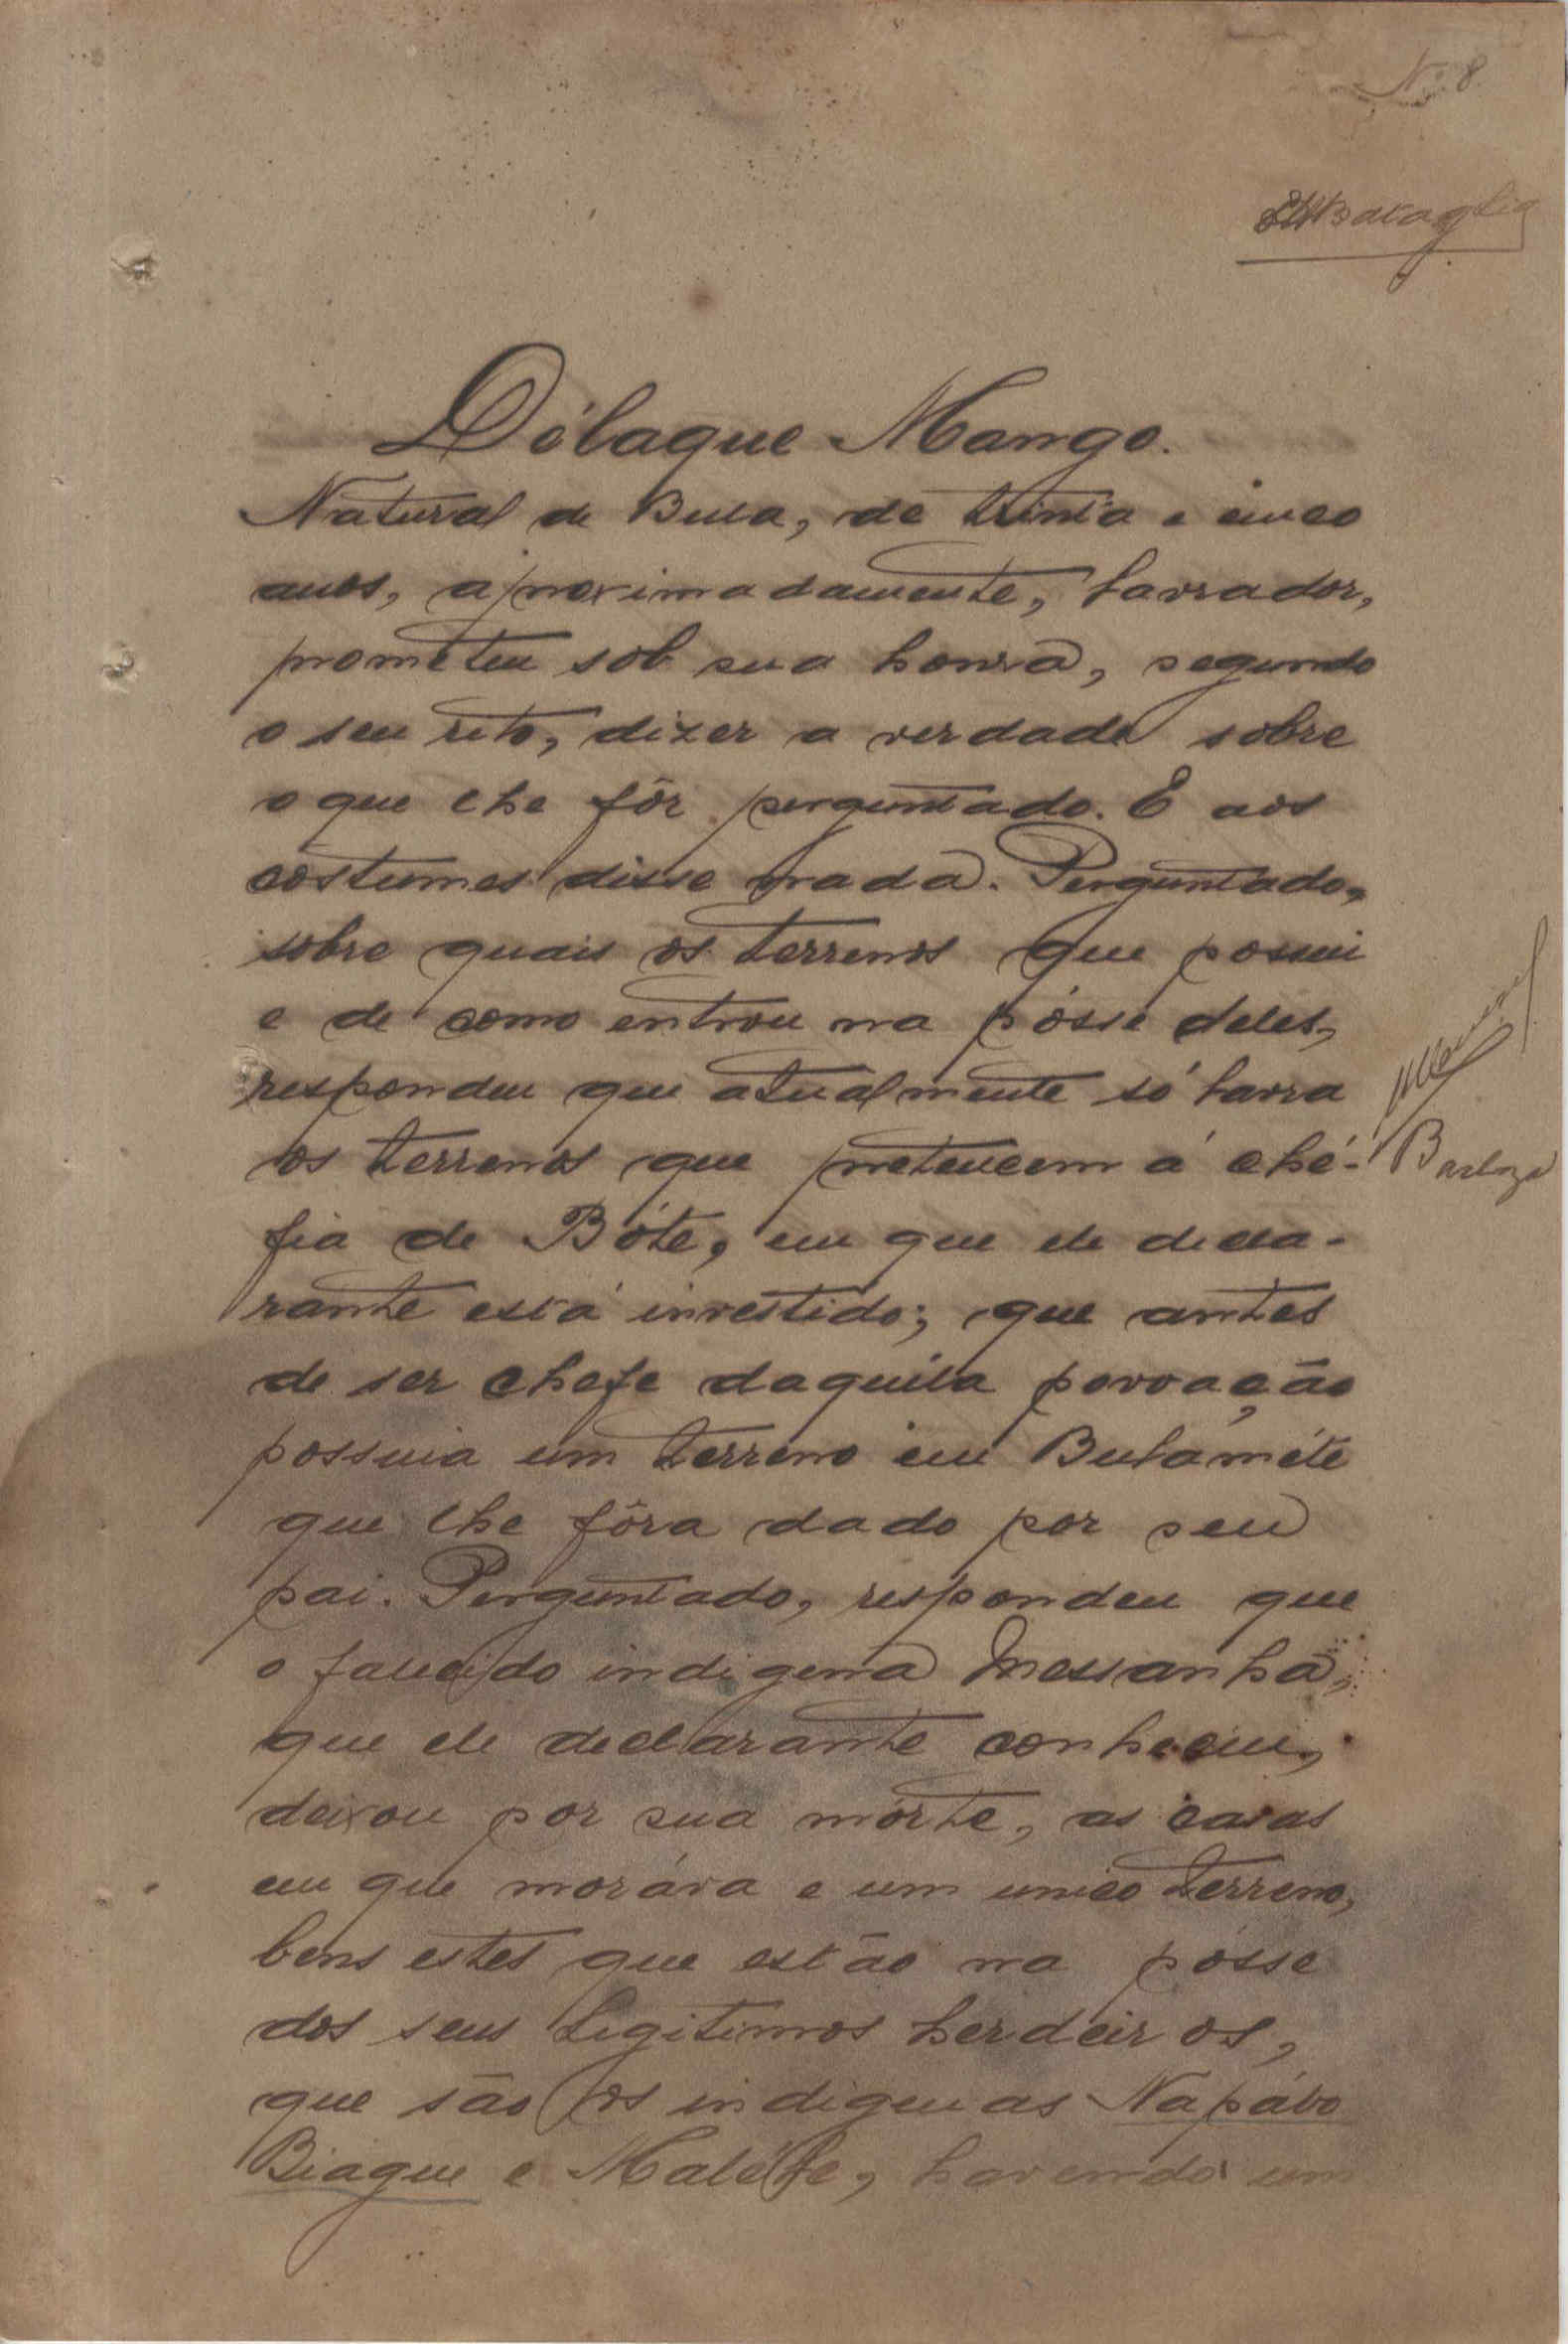 Nº 8
Bataglia
Dólaque Mango.
Natural de Bula, de trinta e cinco
anos, aproximadamente, lavrador,
prometeu sob sua honra, segundo
o seu rito, dizer a verdade sobre
o que lhe fôr perguntado. E aos
costumes disse nada. Perguntado,
sobre quais os terrenos que possui
e de como entrou na pósse deles,
respondeu que atualmente só lavra
os terrenos que pretencem á ché-
Barboza
fia de Bóte, em que ele decla-
rante está investido; que antes
de ser chefe daquela povoação
possuia um terreno em Bulaméte
que lhe fôra dado por seu
pai. Perguntado, respondeu que
o falecido indigena Messanha,
que ele declarante conheceu,
deixou por sua mórte, as casas
em que moráva e um unico terreno,
bens estes que estão na pósse
dos seus legitimos herdeiros,
que são os indigenas Napábo
Biague e Maléfe, havendo um